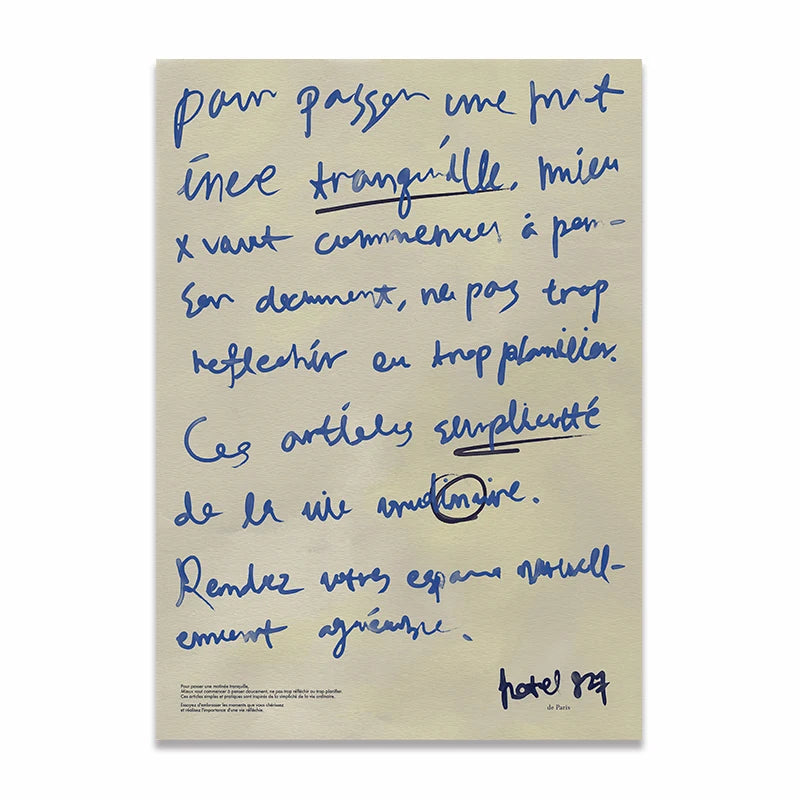 pour passer une mat
inee tranquille, mieu
x vaut commencer à pen-
ser document, ne pas trop
reflechir ou trop planifier.
Ces articles simplicité
de la vie
Rendez votre espace
agréable.
Pour passer une matinée tranquille,
Mieux vaut commencer à penser doucement, ne pas trop réfléchir ou trop planifier.
Ces articles simples et pratiques sont inspirés de la simplicité de la vie ordinaire.
Essayez d'embrasser les moments que vous chérissez
et réalisez l'importance d'une vie réfléchie.
hotel 827
de Paris